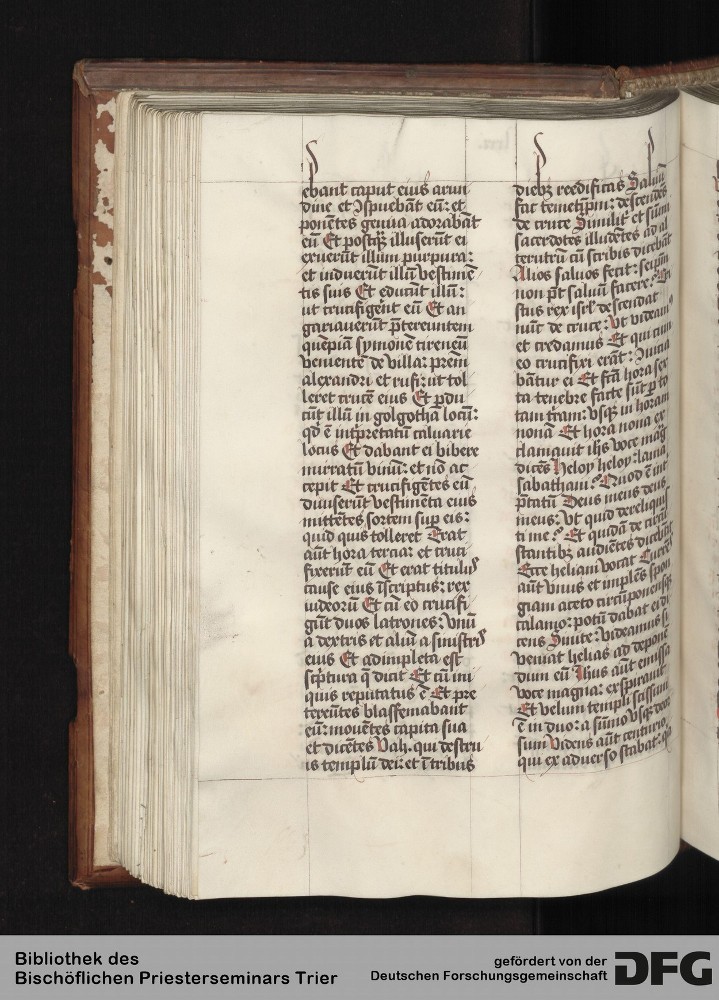 ebant caput eius arun
dine et Ɔspuebāt eū: et
ponētes genua adorabāt
eū Et postqȝ illuserūt ei
exuerūt illum purpura:
et induerūt illū vestimē
tis suis Et educūt illū:
ut crucifigerēt eū Et an
gariauerūt p̄tereuntem
quēpiā symonē cireneū
venientē de villa: prēm
alexandri et rufi: ut tol
leret crucē eius Et ꝑdu
cūt illū in golgotha locū:
qd̄ ē int̄pretatū caluarie
locus Et dabant ei bibere
mirratū vinū: et nō ac
cepit Et crucifigētes eū
diuiserūt vestimēta eius
mittētes sortem suꝑ eis:
quid quis tolleret Erat
aūt hora tercia: et cruci
fixerūt eū Et erat titulus
cause eius īscriptus: rex
iudeorū Et cū eo crucifi
gūt duos latrones: vnū
a dextris et aliū a sinistris
eius Et adimpleta est
scptura q̄ dicit Et cū ini
quis reputatus ē Et pre
tereūtes blasfemabant
eū: mouētes capita sua
et dicētes Vah. qui destru
is templū dei: et ī tribus
diebȝ reedificas Saluū
fac temetip̄m: descendēs
de cruce Similit̄ et sūmi
sacerdotes illudētes ad al
terutrū cū scribis dicebāt
Alios saluos fecit: seip̄m
non pt̄ saluū facere? Xp̄i
stus rex isrl̄ descendat
nūc de cruce: vt videamꝰ
et credamus Et qui cum
eo crucifixi erāt: Ɔuicia
bātur ei Et fcā hora sex
ta tenebre facte sūt ꝑ to
tam t̄ram: vsqȝ in horam
nonā Et hora nona ex
clamauit ihs voce maḡ
dicēs Heloy heloy: lama
sabathani? Quod ē int̄
p̄tatū Deus meus deus
meus: vt quid dereliquis
ti me? Et quidā de circū
stantibȝ audiētes dicebāt
Ecce heliam vocat Currēs
aūt vnus et implēs spon
giam aceto circūponensqȝ
calamo: potū dabat ei di
cens Sinite: videamus si
veniat helias ad depone
dum eū Ihus aūt emissa
voce magna: exspirauit
Et velum templi scissum
ē in duo: a sūmo vsqȝ deor
sum Videns aūt centurio
qui ex aduerso stabat: q̄
Bibliothek des
Bischöflichen Priesterseminars Trier
gefördert von der
Deutschen Forschungsgemeinschaft
DFG